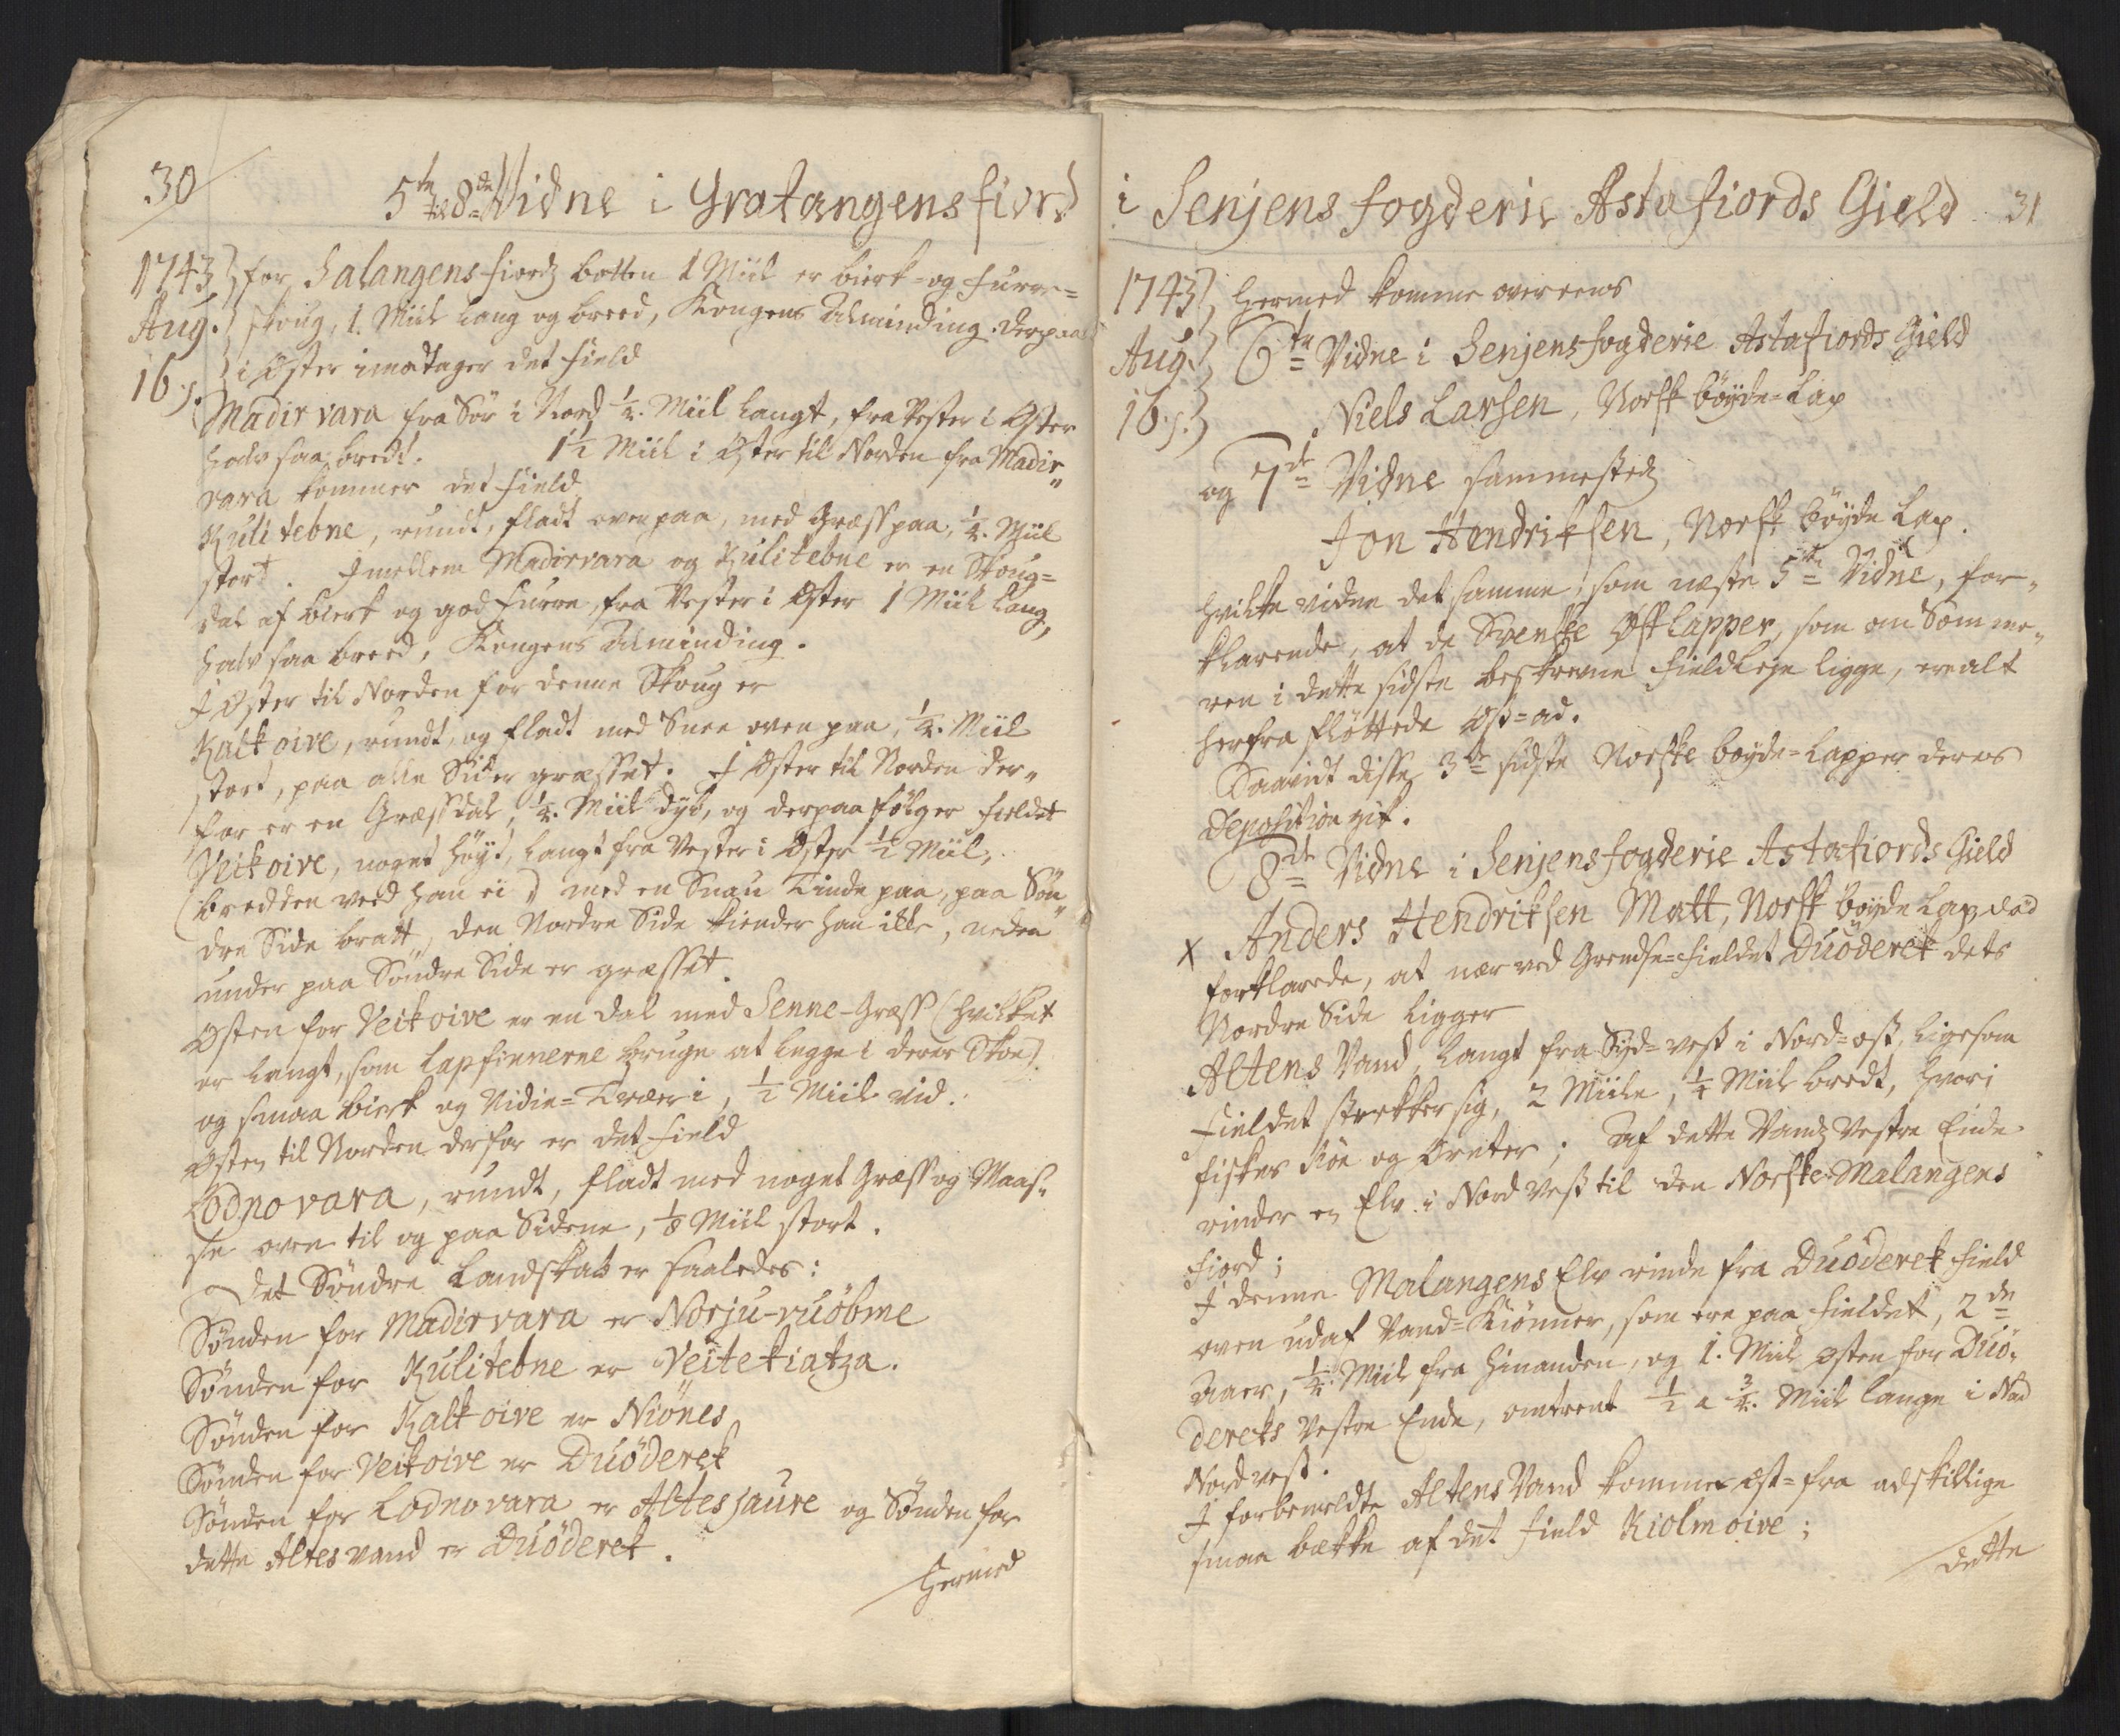 30
5te til 8de Vidne i Gratangens fiord
1743 for Salangens fiords botten 1 Miil er birk- og furre=
Aug. skoug, 1. Miil lang og breed, Kongens Alminding. Derpaa
16 s. i Øster imodtager det field
Madir vara fra Sør i Nord ½. Miil langt, fra Vester i Øster
halv saa bredt. 1½ Miil i Øster til Norden fra Madir„
vara kommer det field
Kulitebne, rundt, fladt oven paa, med Græss paa, ¼. Miil
stort. Imellem Madirvara og Kulitebne er en Skoug=
dal af birk og god furre, fra Vester i Øster 1 Miil lang,
halv saa breed, Kongens Alminding.
I Øster til Norden for denne Skoug er
Kalkoive, rundt, og fladt med Snee oven paa, ¼. Miil
stort, paa alle Sider græsset. I Øster til Norden der„
for er en Græssdal, ¼. Miil dyb, og derpaa følger fieldet
Veikoive, noget høyt, langt fra Vester i Øster ½ Miil,
(bredden veed han ei) med en Snau Tinde paa, paa Søn„
dre Side bratt, den Nordre Side kiender han ikke, neden
under paa Søndre Side er græsset.
Østen for Veikoive er en dal med Senne-Græss (hvilket
er langt, som Lapfinnerne bruge at legge i deres Skoe).
og smaa birk og Vidie=Træer i, ½ Miil vid.
Østen til Norden derfor er det field
Lodnovara, rundt, fladt med noget Græss og Maas„
se oven til og paa Siderne, ⅛ Miil stort.
Det Søndre Landskab er saaledes:
Sønden for Madirvara er Norju-vuöbme
Sønden for Kulitebne er Veitetiatza.
Sønden for Kalkoive er Niönes
Sønden for Veikoive er Duöderek
Sønden for Lodnovara er Altesjaure og Sønden for
dette Altesvand er Duöderek.
Hermed
i Senjens fogderie Astafiords Gield 31
1743 Hermed komme overeens
Aug. 6te Vidne i Senjens fogderie Astafiords Gield
16 s. Niels Larsen, Norsk böyde=Lap
og 7de Vidne sammesteds
Jon Hendriksen, Norsk böyde Lap.
hvilke vidne det samme, som neste 5te Vidne, for„
klarende, at de Svenske Øst Lapper, som om Somme„
ren i dette sidste beskrevne fieldleje ligge, ere alt
herfra fløttede Øst=ad.
Saavidt disse 3de sidste Norske böyde=Lapper deres
Deposition gik.
8de Vidne i Senjens fogderie Astafiords Gield
x Anders Hendriksen Matt, Norsk böyde Lap
forklarede, at nær ved Grendse=fieldet Duöderek dets
Nordre Side ligger
Altens Vand, langt fra Syd=vest i Nord=ost, ligesom
fieldet strekker sig, 2 Miile, ¼ Miil bredt, hvori
fiskes Röe og Oreter; Af dette Vands Vestre Ende
rinder en Elv i Nord Vest til den Norske Malangens
fiord;
I denne Malangens Elv rinde fra Duöderek field
oven udaf Vand=Kiönner, som ere paa fieldet, 2de
Aaer, ¼. Miil fra hinanden, og 1. Miil Østen for Duö„
dereks Vestre Ende, omtrent ½ a ¾. Miil lange i Nord
Nordvest.
I forbemeldte Altens Vand kommer Øst=fra adskillige
smaa bække af det field Kiolmoive;
Dette